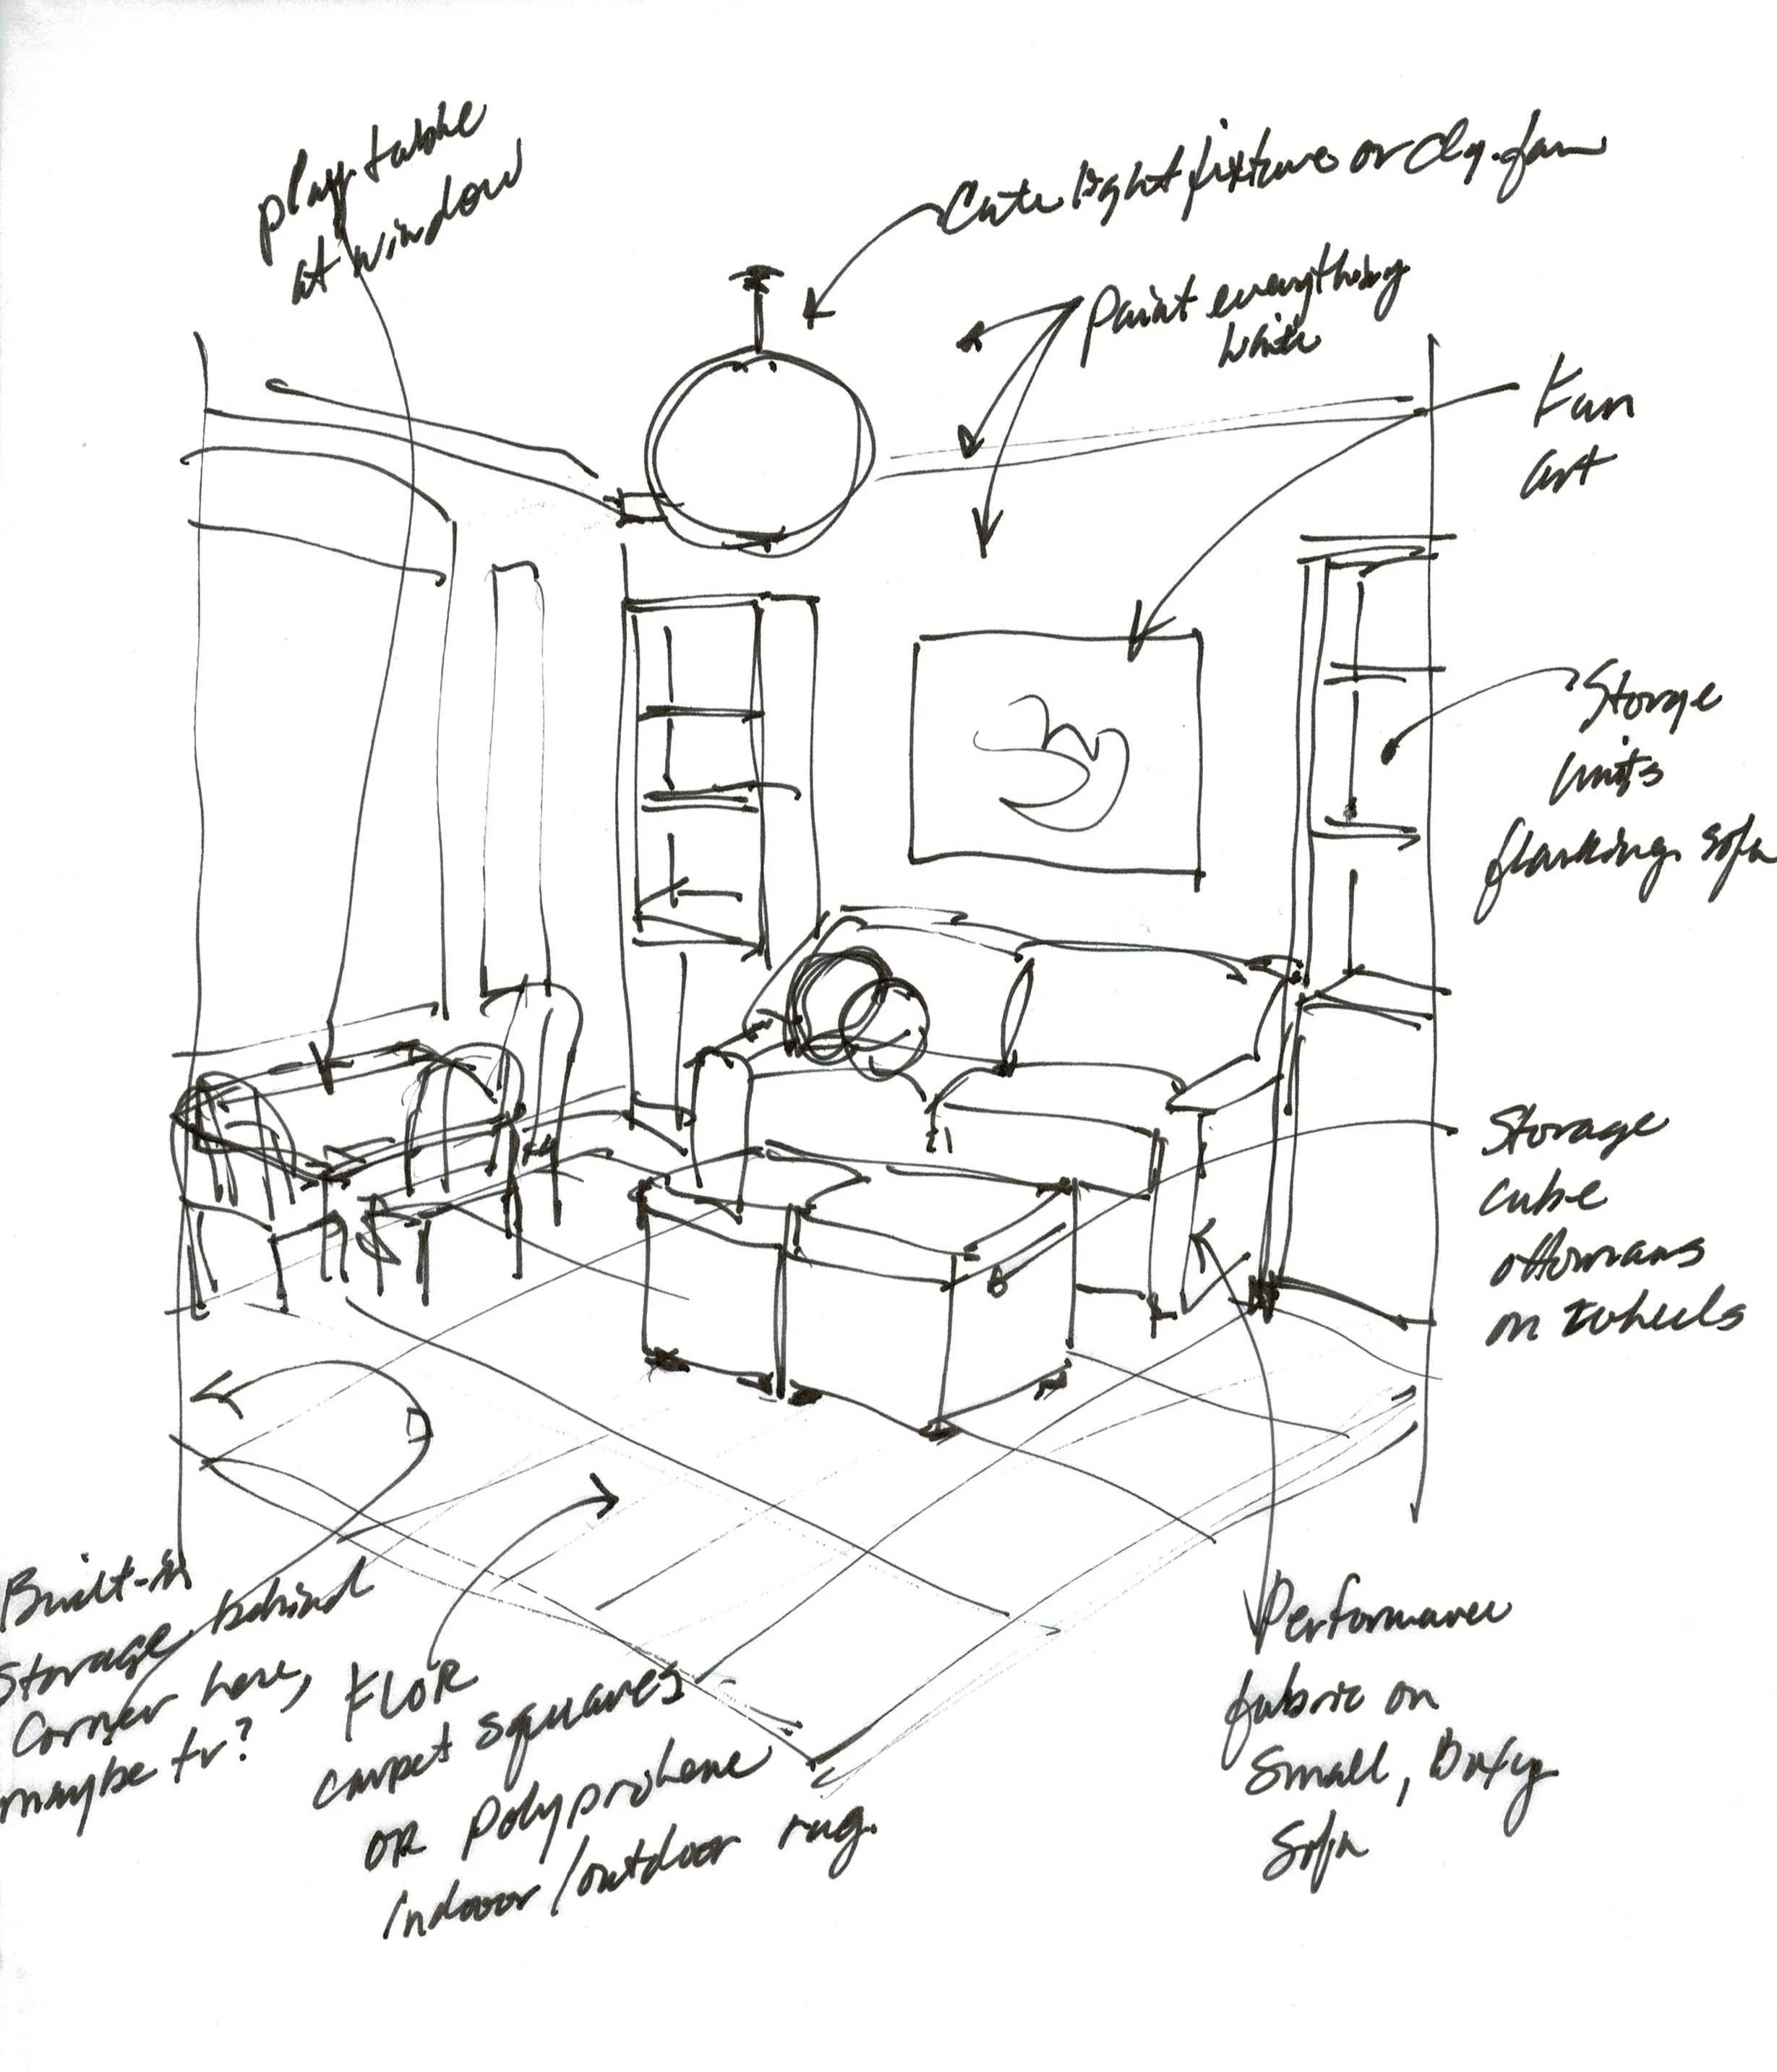 play table
at window
Cute light fixture or clg. fan
Paint everything
white
Fun
art
Storge
units
flanking sofa
Storage
cube
ottomans
on wheels
Built-in
Storage behind
corner here,
maybe tv?
FLOR
carpet squares
OR Polyprolene
Indoor/outdoor rug.
Performance
fabric on
Small, Boxy
Sofa